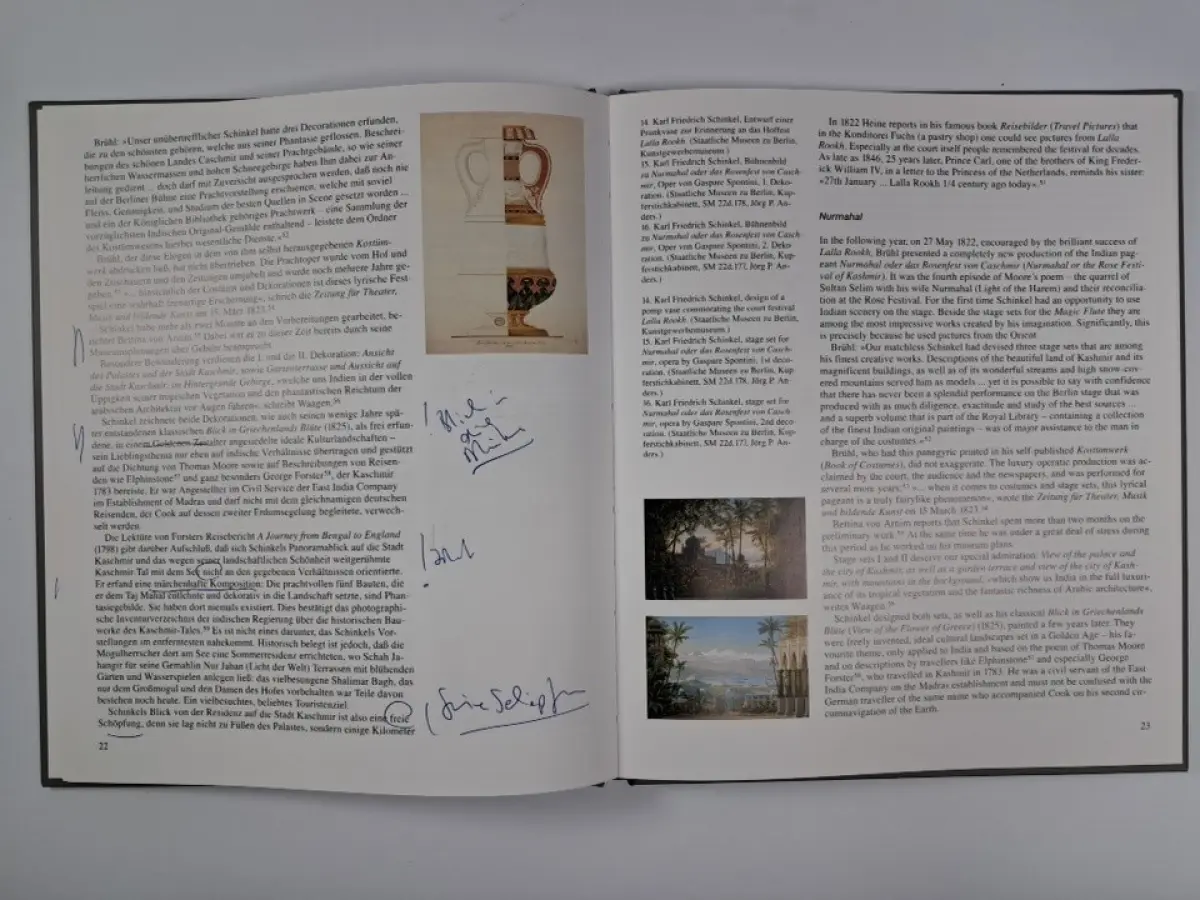 Brühl: »Unser unübertrefflicher Schinkel hatte drei Decorationen erfunden,
die zu den schönsten gehören, welche aus seiner Phantasie geflossen. Beschrei-
bungen des schönen Landes Caschmir und seiner Prachtgebäude, so wie seiner
herrlichen Wassermassen und hohen Schneegebirge haben Ihm dabei zur An-
leitung gedient ... doch darf mit Zuversicht ausgesprochen werden, daß noch nie
auf der Berliner Bühne eine Prachtvorstellung erschienen, welche mit soviel
Fleiss, Genauigkeit, und Studium der besten Quellen in Scene gesetzt worden ...
und ein der Königlichen Bibliothek gehöriges Prachtwerk – eine Sammlung der
vorzüglichsten Indischen Original-Gemälde enthaltend – leistete dem Ordner
des Kostümwesens hierbei wesentliche Dienste.«52
Brühl, der diese Elogen in dem von ihm selbst herausgegebenen Kostüm-
werk abdrucken ließ, hat nicht übertrieben. Die Prachtoper wurde vom Hof und
den Zuschauern und den Zeitungen umjubelt und wurde noch mehrere Jahre ge-
geben.53 »... hinsichtlich der Costüms und Dekorationen ist dieses lyrische Fest-
spiel eine wahrhaft feenartige Erscheinung«, schrieb die Zeitung für Theater,
Musik und bildende Kunst am 15. März 1823.54
Schinkel habe mehr als zwei Monate an den Vorbereitungen gearbeitet, be-
richtet Bettina von Arnim.55 Dabei war er zu dieser Zeit bereits durch seine
Museumsplanungen über Gebühr beansprucht.
Besondere Bewunderung verdienen die I. und die II. Dekoration: Ansicht
des Palastes und der Stadt Kaschmir, sowie Gartenterrasse und Aussicht auf
die Stadt Kaschmir, im Hintergrunde Gebirge, »welche uns Indien in der vollen
Üppigkeit seiner tropischen Vegetation und den phantastischen Reichtum der
arabischen Architektur vor Augen führen«, schreibt Waagen.56
Schinkel zeichnete beide Dekorationen, wie auch seinen wenige Jahre spä-
ter entstandenen klassischen Blick in Griechenlands Blüte (1825), als frei erfun-
dene, in einem Goldenen Zeitalter angesiedelte ideale Kulturlandschaften –
sein Lieblingsthema nur eben auf indische Verhältnisse übertragen und gestützt
auf die Dichtung von Thomas Moore sowie auf Beschreibungen von Reisen-
den wie Elphinstone57 und ganz besonders George Forster58, der Kaschmir
1783 bereiste. Er war Angestellter im Civil Service der East India Company
im Establishment of Madras und darf nicht mit dem gleichnamigen deutschen
Reisenden, der Cook auf dessen zweiter Erdumsegelung begleitete, verwech-
selt werden.
Die Lektüre von Forsters Reisebericht A Journey from Bengal to England
(1798) gibt darüber Aufschluß, daß sich Schinkels Panoramablick auf die Stadt
Kaschmir und das wegen seiner landschaftlichen Schönheit weitgerühmte
Kaschmir-Tal mit dem See nicht an den gegebenen Verhältnissen orientierte.
Er erfand eine märchenhafte Komposition: Die prachtvollen fünf Bauten, die
er dem Taj Mahal entlehnte und dekorativ in die Landschaft setzte, sind Phan-
tasiegebilde. Sie haben dort niemals existiert. Dies bestätigt das photographi-
sche Inventurverzeichnis der indischen Regierung über die historischen Bau-
werke des Kaschmir-Tales.59 Es ist nicht eines darunter, das Schinkels Vor-
stellungen im entferntesten nahekommt. Historisch belegt ist jedoch, daß die
Mogulherrscher dort am See eine Sommerresidenz errichteten, wo Schah Ja-
hangir für seine Gemahlin Nur Jahan (Licht der Welt) Terrassen mit blühenden
Gärten und Wasserspielen anlegen ließ: das vielbesungene Shalimar Bagh, das
nur dem Großmogul und den Damen des Hofes vorbehalten war. Teile davon
bestehen noch heute. Ein vielbesuchtes, beliebtes Touristenziel.
Schinkels Blick von der Residenz auf die Stadt Kaschmir ist also eine freie
Schöpfung, denn sie lag nicht zu Füßen des Palastes, sondern einige Kilometer
22
14. Karl Friedrich Schinkel, Entwurf einer
Prunkvase zur Erinnerung an das Hoffest
Lalla Rookh. (Staatliche Museen zu Berlin,
Kunstgewerbemuseum.)
15. Karl Friedrich Schinkel, Bühnenbild
zu Nurmahal oder das Rosenfest von Casch-
mir, Oper von Gaspare Spontini, 1. Deko-
ration. (Staatliche Museen zu Berlin, Kup-
ferstichkabinett, SM 22d.178, Jörg P. An-
ders.)
16. Karl Friedrich Schinkel, Bühnenbild
zu Nurmahal oder das Rosenfest von Casch-
mir, Oper von Gaspare Spontini, 2. Deko-
ration. (Staatliche Museen zu Berlin, Kup-
ferstichkabinett, SM 22d.177, Jörg P. An-
ders.)
14. Karl Friedrich Schinkel, design of a
pomp vase commorating the court festival
Lalla Rookh. (Staatliche Museen zu Berlin,
Kunstgewerbemuseum.)
15. Karl Friedrich Schinkel, stage set for
Nurmahal oder das Rosenfest von Casch-
mir, opera by Gaspare Spontini, 1st deco-
ration. (Staatliche Museen zu Berlin, Kup-
ferstichkabinett, SM 22d.178, Jörg P. An-
ders.)
16. Karl Friedrich Schinkel, stage set for
Nurmahal oder das Rosenfest von Casch-
mir, opera by Gaspare Spontini, 2nd deco-
ration. (Staatliche Museen zu Berlin, Kup-
ferstichkabinett, SM 22d.177, Jörg P. An-
ders.)
In 1822 Heine reports in his famous book Reisebilder (Travel Pictures) that
in the Konditorei Fuchs (a pastry shop) one could see pictures from Lalla
Rookh. Especially at the court itself people remembered the festival for decades.
As late as 1846, 25 years later, Prince Carl, one of the brothers of King Freder-
ick William IV, in a letter to the Princess of the Netherlands, reminds his sister:
»27th January ... Lalla Rookh 1/4 century ago today«.51
Nurmahal
In the following year, on 27 May 1822, encouraged by the brilliant success of
Lalla Rookh, Brühl presented a completely new production of the Indian pag-
eant Nurmahal oder das Rosenfest von Caschmir (Nurmahal or the Rose Festi-
val of Kashmir). It was the fourth episode of Moore's poem – the quarrel of
Sultan Selim with his wife Nurmahal (Light of the Harem) and their reconcilia-
tion at the Rose Festival. For the first time Schinkel had an opportunity to use
Indian scenery on the stage. Beside the stage sets for the Magic Flute they are
among the most impressive works created by his imagination. Significantly, this
is precisely because he used pictures from the Orient.
Brühl: »Our matchless Schinkel had devised three stage sets that are among
his finest creative works. Descriptions of the beautiful land of Kashmir and its
magnificent buildings, as well as of its wonderful streams and high snow-cov-
ered mountains served him as models ... yet it is possible to say with confidence
that there has never been a splendid performance on the Berlin stage that was
produced with as much diligence, exactitude and study of the best sources ...
and a superb volume that is part of the Royal Library – containing a collection
of the finest Indian original paintings – was of major assistance to the man in
charge of the costumes.«52
Brühl, who had this panegyric printed in his self-published Kostümwerk
(Book of Costumes), did not exaggerate. The luxury operatic production was ac-
claimed by the court, the audience and the newspapers, and was performed for
several more years.53 »... when it comes to costumes and stage sets, this lyrical
pageant is a truly fairylike phenomenon«, wrote the Zeitung für Theater, Musik
und bildende Kunst on 15 March 1823.54
Bettina von Arnim reports that Schinkel spent more than two months on the
preliminary work.55 At the same time he was under a great deal of stress during
this period as he worked on his museum plans.
Stage sets I and II deserve our special admiration: View of the palace and
the city of Kashmir, as well as a garden terrace and view of the city of Kash-
mir, with mountains in the background, »which show us India in the full luxuri-
ance of its tropical vegetation and the fantastic richness of Arabic architecture«,
writes Waagen.56
Schinkel designed both sets, as well as his classical Blick in Griechenlands
Blüte (View of the Flower of Greece) (1825), painted a few years later. They
were freely invented, ideal cultural landscapes set in a Golden Age – his fa-
vourite theme, only applied to India and based on the poem of Thomas Moore
and on descriptions by travellers like Elphinstone57 and especially George
Forster58, who travelled in Kashmir in 1783. He was a civil servant of the East
India Company on the Madras establishment and must not be confused with the
German traveller of the same name who accompanied Cook on his second cir-
cumnavigation of the Earth.
23